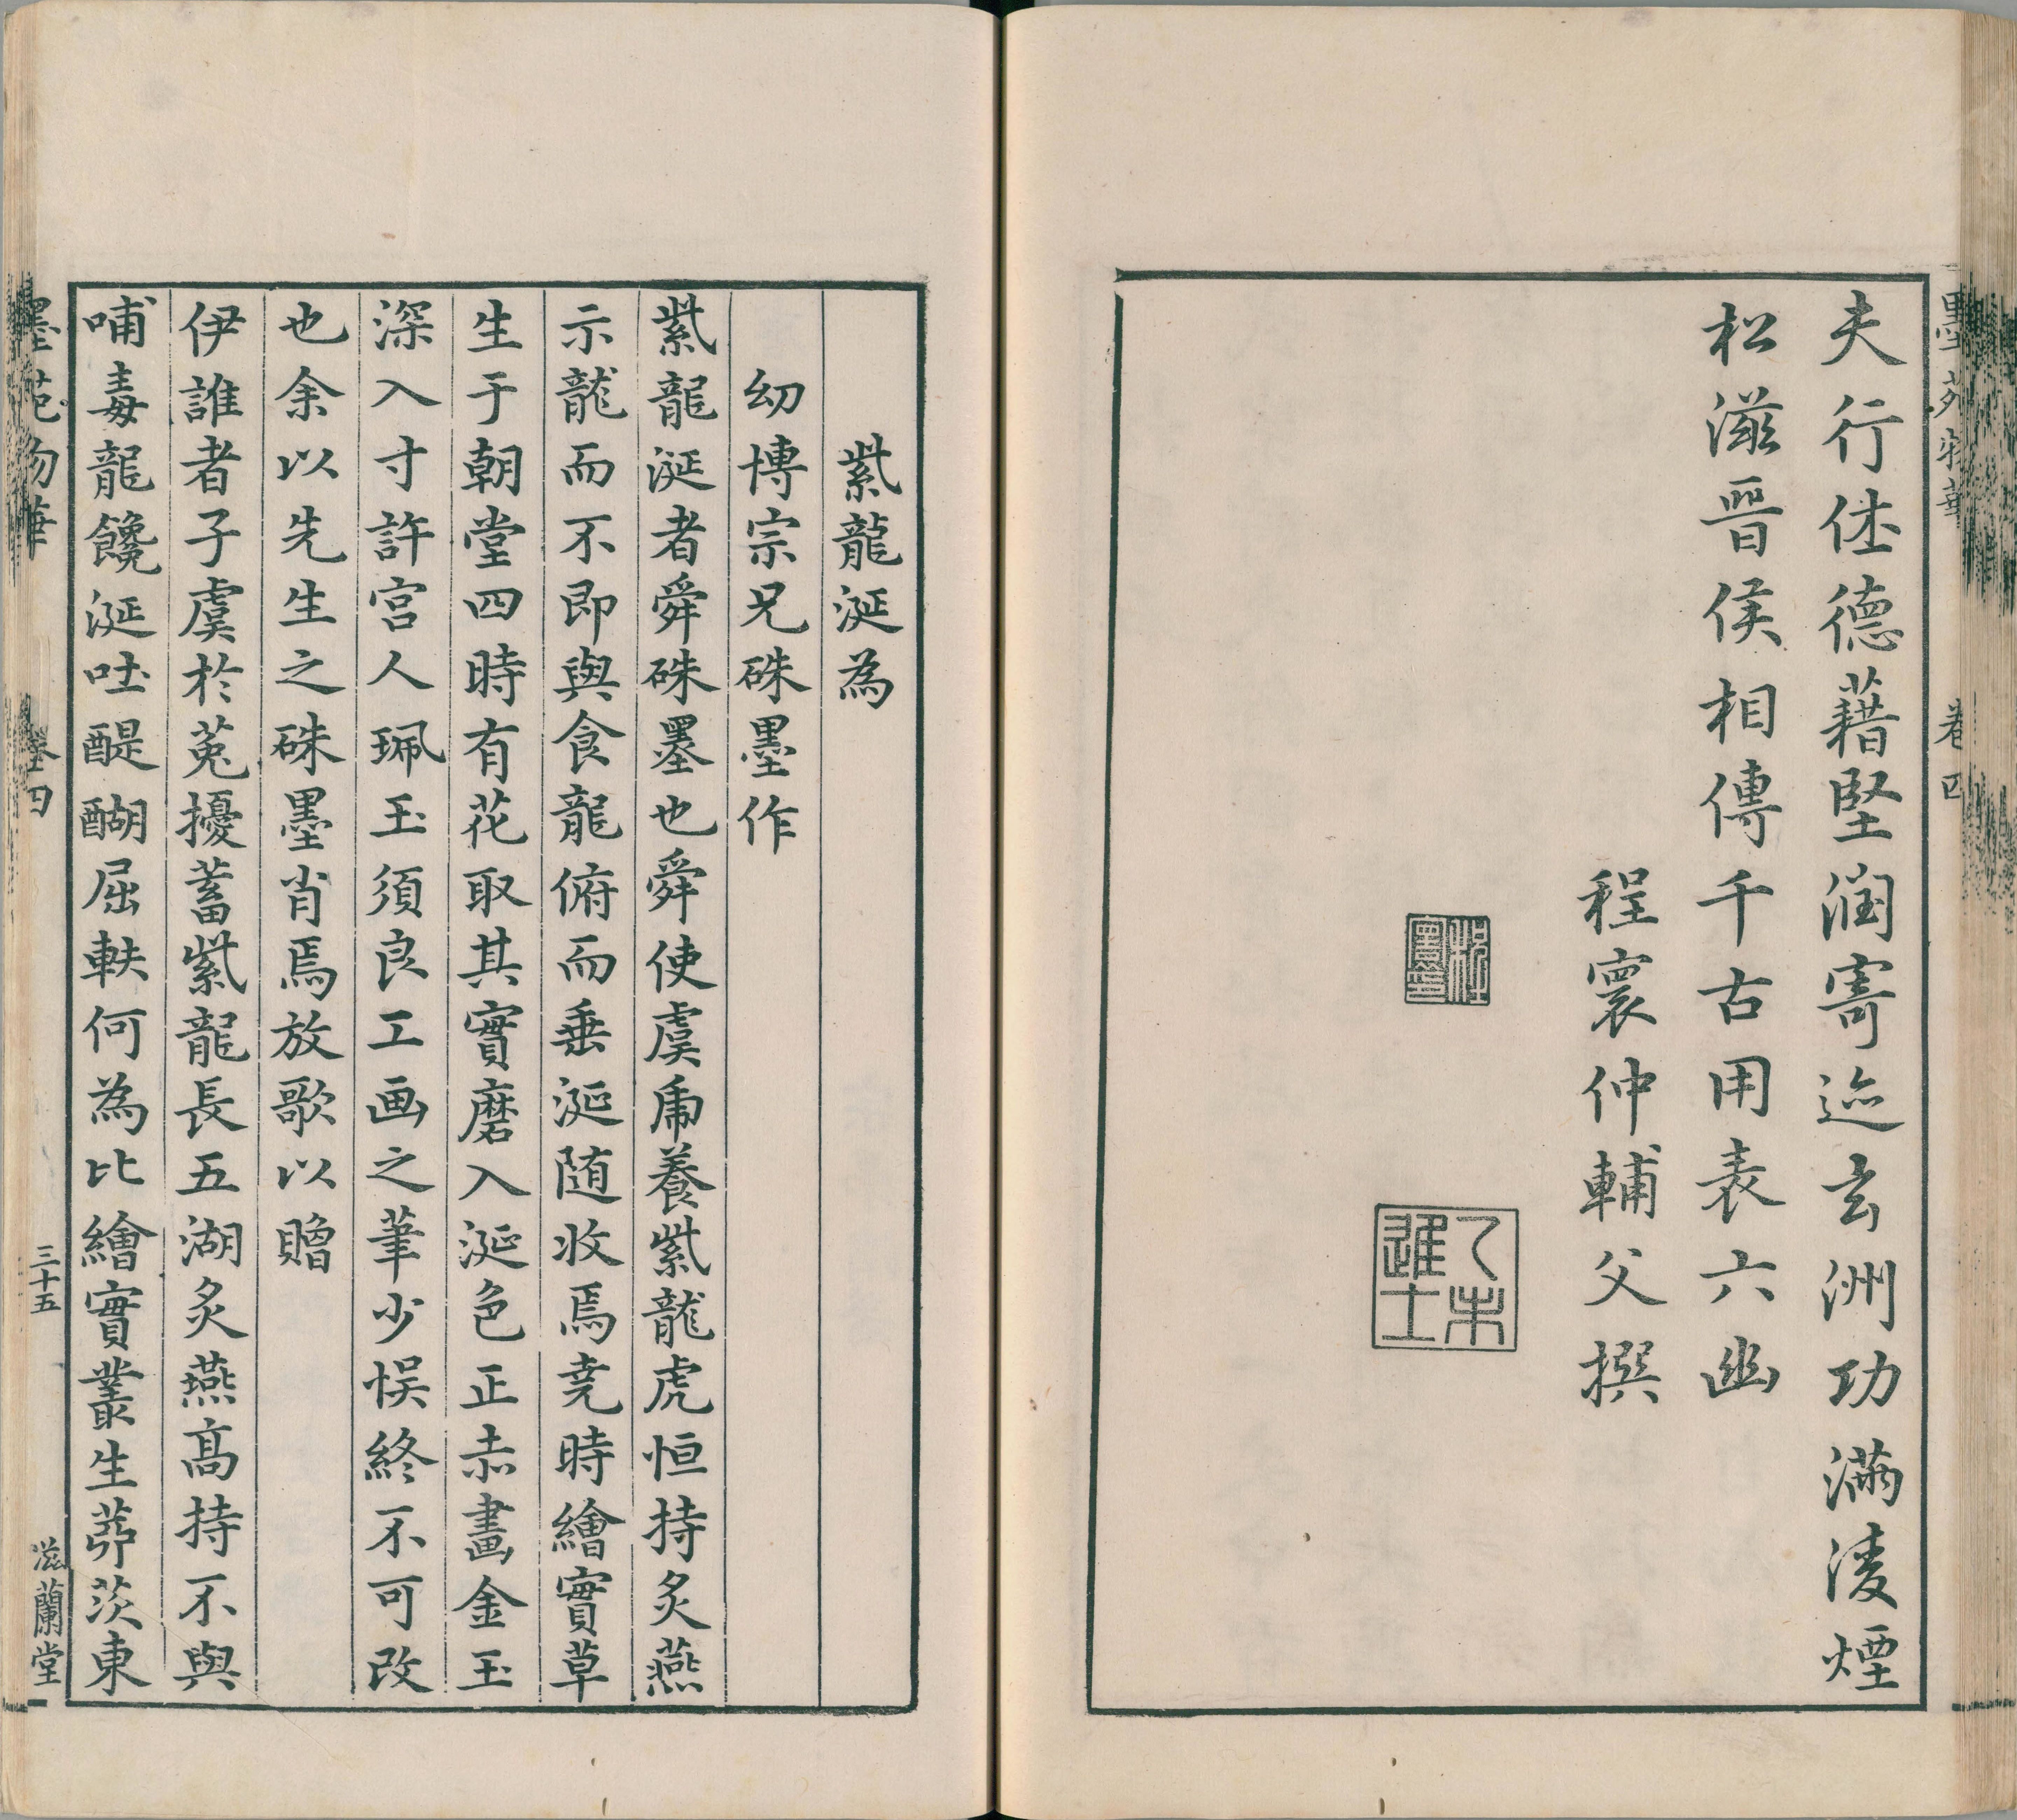 墨苑物華 卷四
夫行仕德藉堅潤寄迹玄洲功滿凌煙
松滋晉侯相傳千古用表六幽
程寰仲輔父撰
乙未進士
紫龍涎為
幼博宗兄硃墨作
紫龍涎者舜硃墨也舜使虞虎養紫龍虎恒持炙燕
示龍而不即與食龍俯而垂涎随收焉堯時繪實草
生于朝堂四時有花取其實磨入涎色正赤畫金玉
深入寸許宮人珮玉須良工画之筆少悮終不可改
也余以先生之硃墨肖焉放歌以贈
伊誰者子虞於菟擾蓄紫龍長五湖炙燕高持不與
哺毒龍饞涎吐醍醐屈軼何為比繪實叢生茆茨東
墨苑物華 卷四 三十五 滋蘭堂